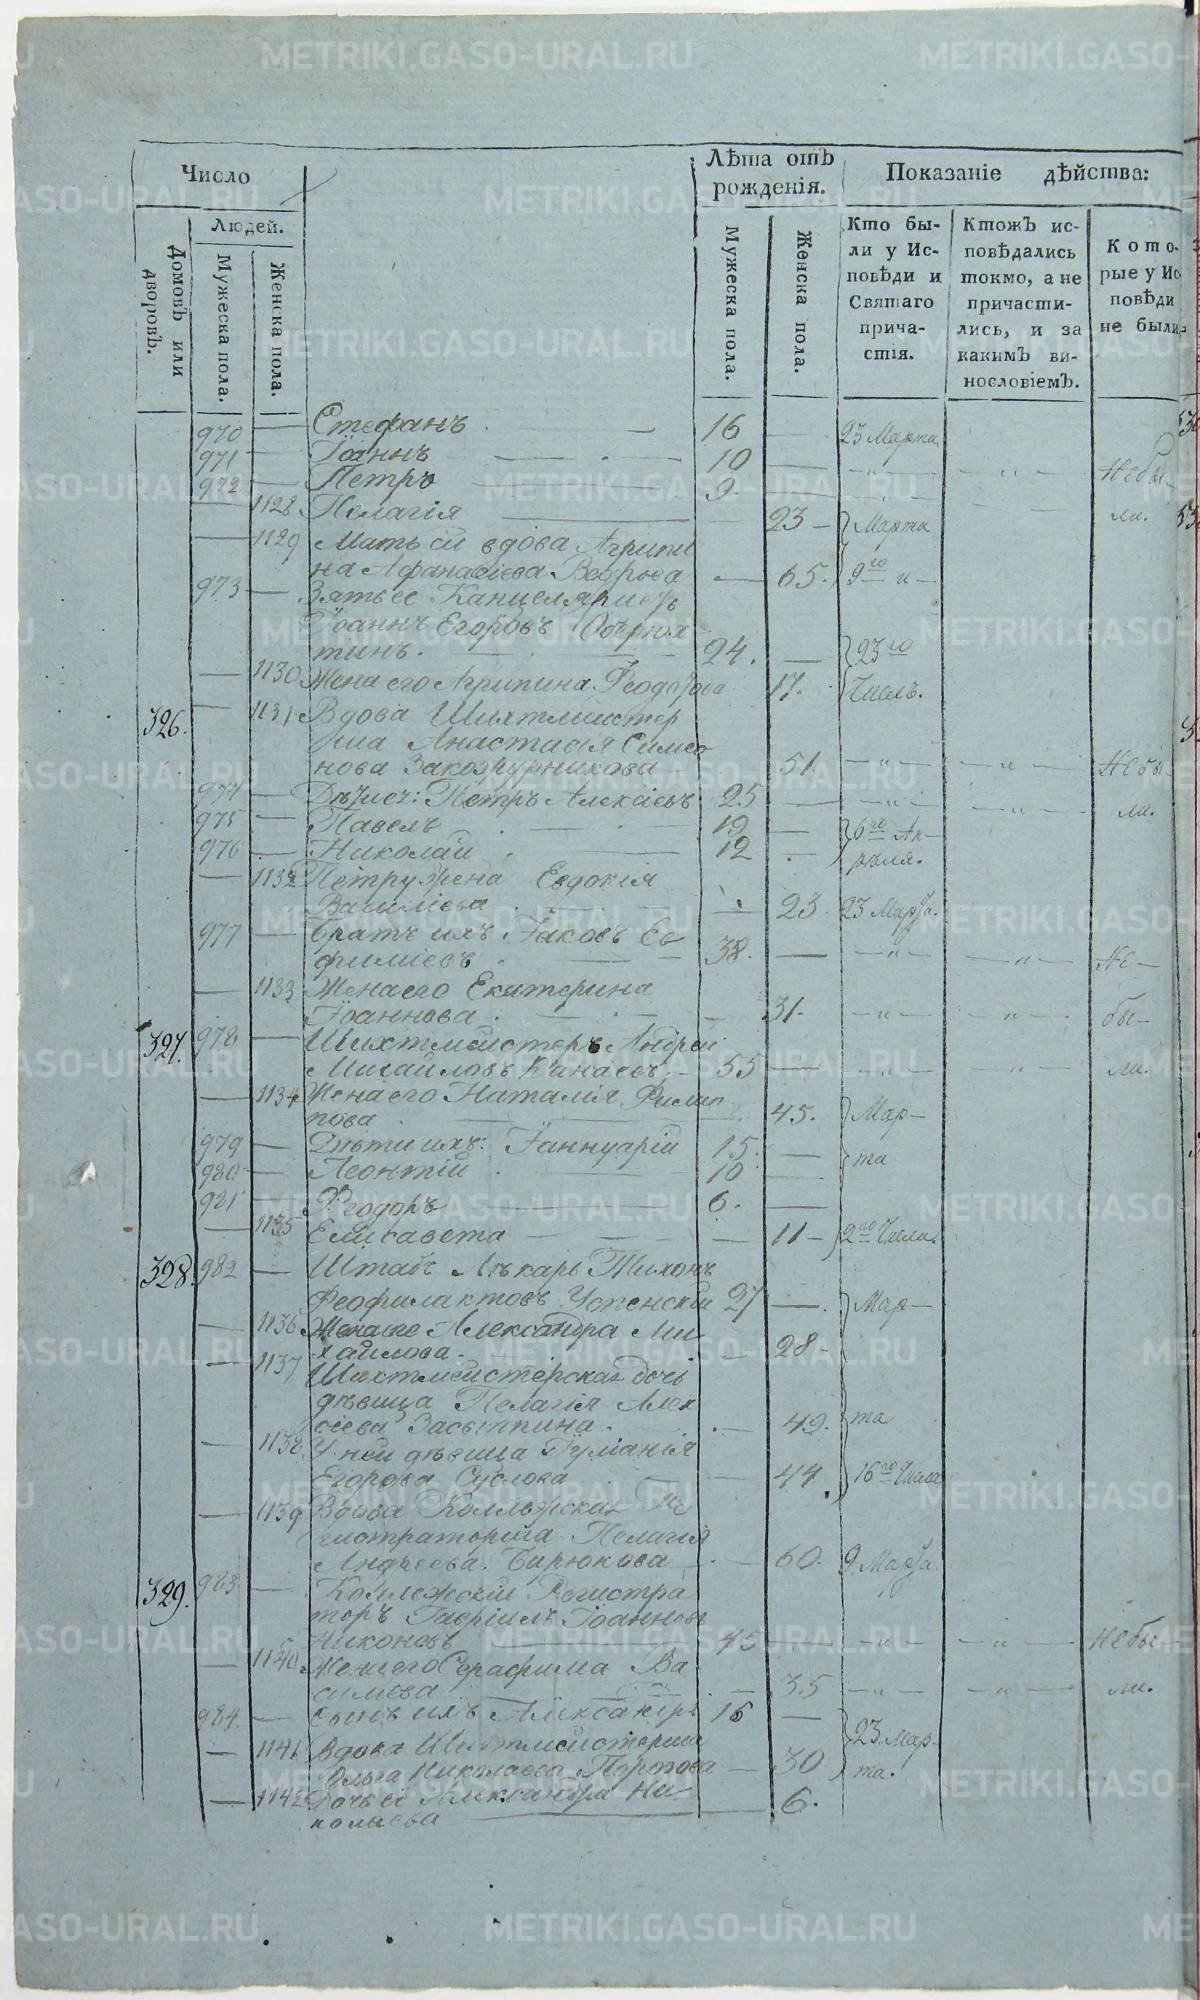 METRIKI.GASO-URAL.RU
Число
Лѣта отъ рожденія.
Показаніе дѣйства:
Людей.
Домовъ или дворовъ.
Мужеска пола.
Женска пола.
Мужеска пола.
Женска пола.
Кто были у Исповѣди и Святаго причастія.
Ктожъ исповѣдались токмо, а не причастились, и за какимъ винословіемъ.
Которые у Исповѣди не были.
970 — Стефанъ — 16 — 23 Марта
971 — Іоаннъ — 10 — „ — „ — Небы-
972 — Петръ — 9.
— 1128 Пелагія — 23 — Марта ли.
— 1129 Мать ей вдова Агрипи
на Афанасіева — 65. 9го „ —
973 — Зять ее Канцеляристъ
Іоаннъ Егоровъ
тинъ. 24. — 23го
— 1130 Жена его Агрипина Феодорова 17. Числъ.
326. — 1131 Вдова Шихтмейстер
ша Анастасія Симео
нова 51 — „ — „ — Небы-
974 — Дѣти ея: Петръ Алексіевъ 25 — „ — „ — ли.
975 — Павелъ 19 — 6го Ап-
976 — Николай 12 — рѣля.
— 1132 Петру жена Евдокія
Василіева — 23. 23 Марта.
977 — Братъ ихъ Іаковъ Ев
филіевъ 38. — „ — „ — Не—
— 1133 Жена его Екатерина
Іоаннова. — 31. — „ — „ — бы—
327. 978 — Шихтмейстеръ Андрей
Михайловъ 55 — ли.
— 1134 Жена его Наталія Филип
пова — 45. Мар—
979 — Дѣти ихъ: Іаннуарій 15. — та
980 — Леонтій 10 —
981 — Феодоръ 6. —
— 1135 Елисавета — 11 — 2го Числа
328. 982 — Штабъ Лѣкарь Тихонъ
Феофилактовъ Успенскій 27 — Мар—
— 1136 Жена его Александра Ми-
хайлова. — 28 —
— 1137 Шихтмейстерская дочь
дѣвица Пелагія Алек
сіева Засыпкина. — 49. та
— 1138 У ней дѣвица
Егорова Суслова 44 16го Числа
— 1139 Вдова Коллежская Ре
гистраторша Пелагія
Андреева Бирюкова — 60. 9 Марта.
329. 983 — Коллежскій Регистра
торъ Гавріилъ Іоанновъ
Никоновъ 45 — „ — „ — Небы-
— 1140 Жена его Серафима Ва-
силіева — 35 — „ — „ — ли.
984. — Сынъ ихъ Александръ 16 — 23. Мар-
— 1141 Вдова Шихтмейстерша
Ольга Николаева — 30 та.
— 1142 Дочь ея Александра Ни-
колаева — 6.